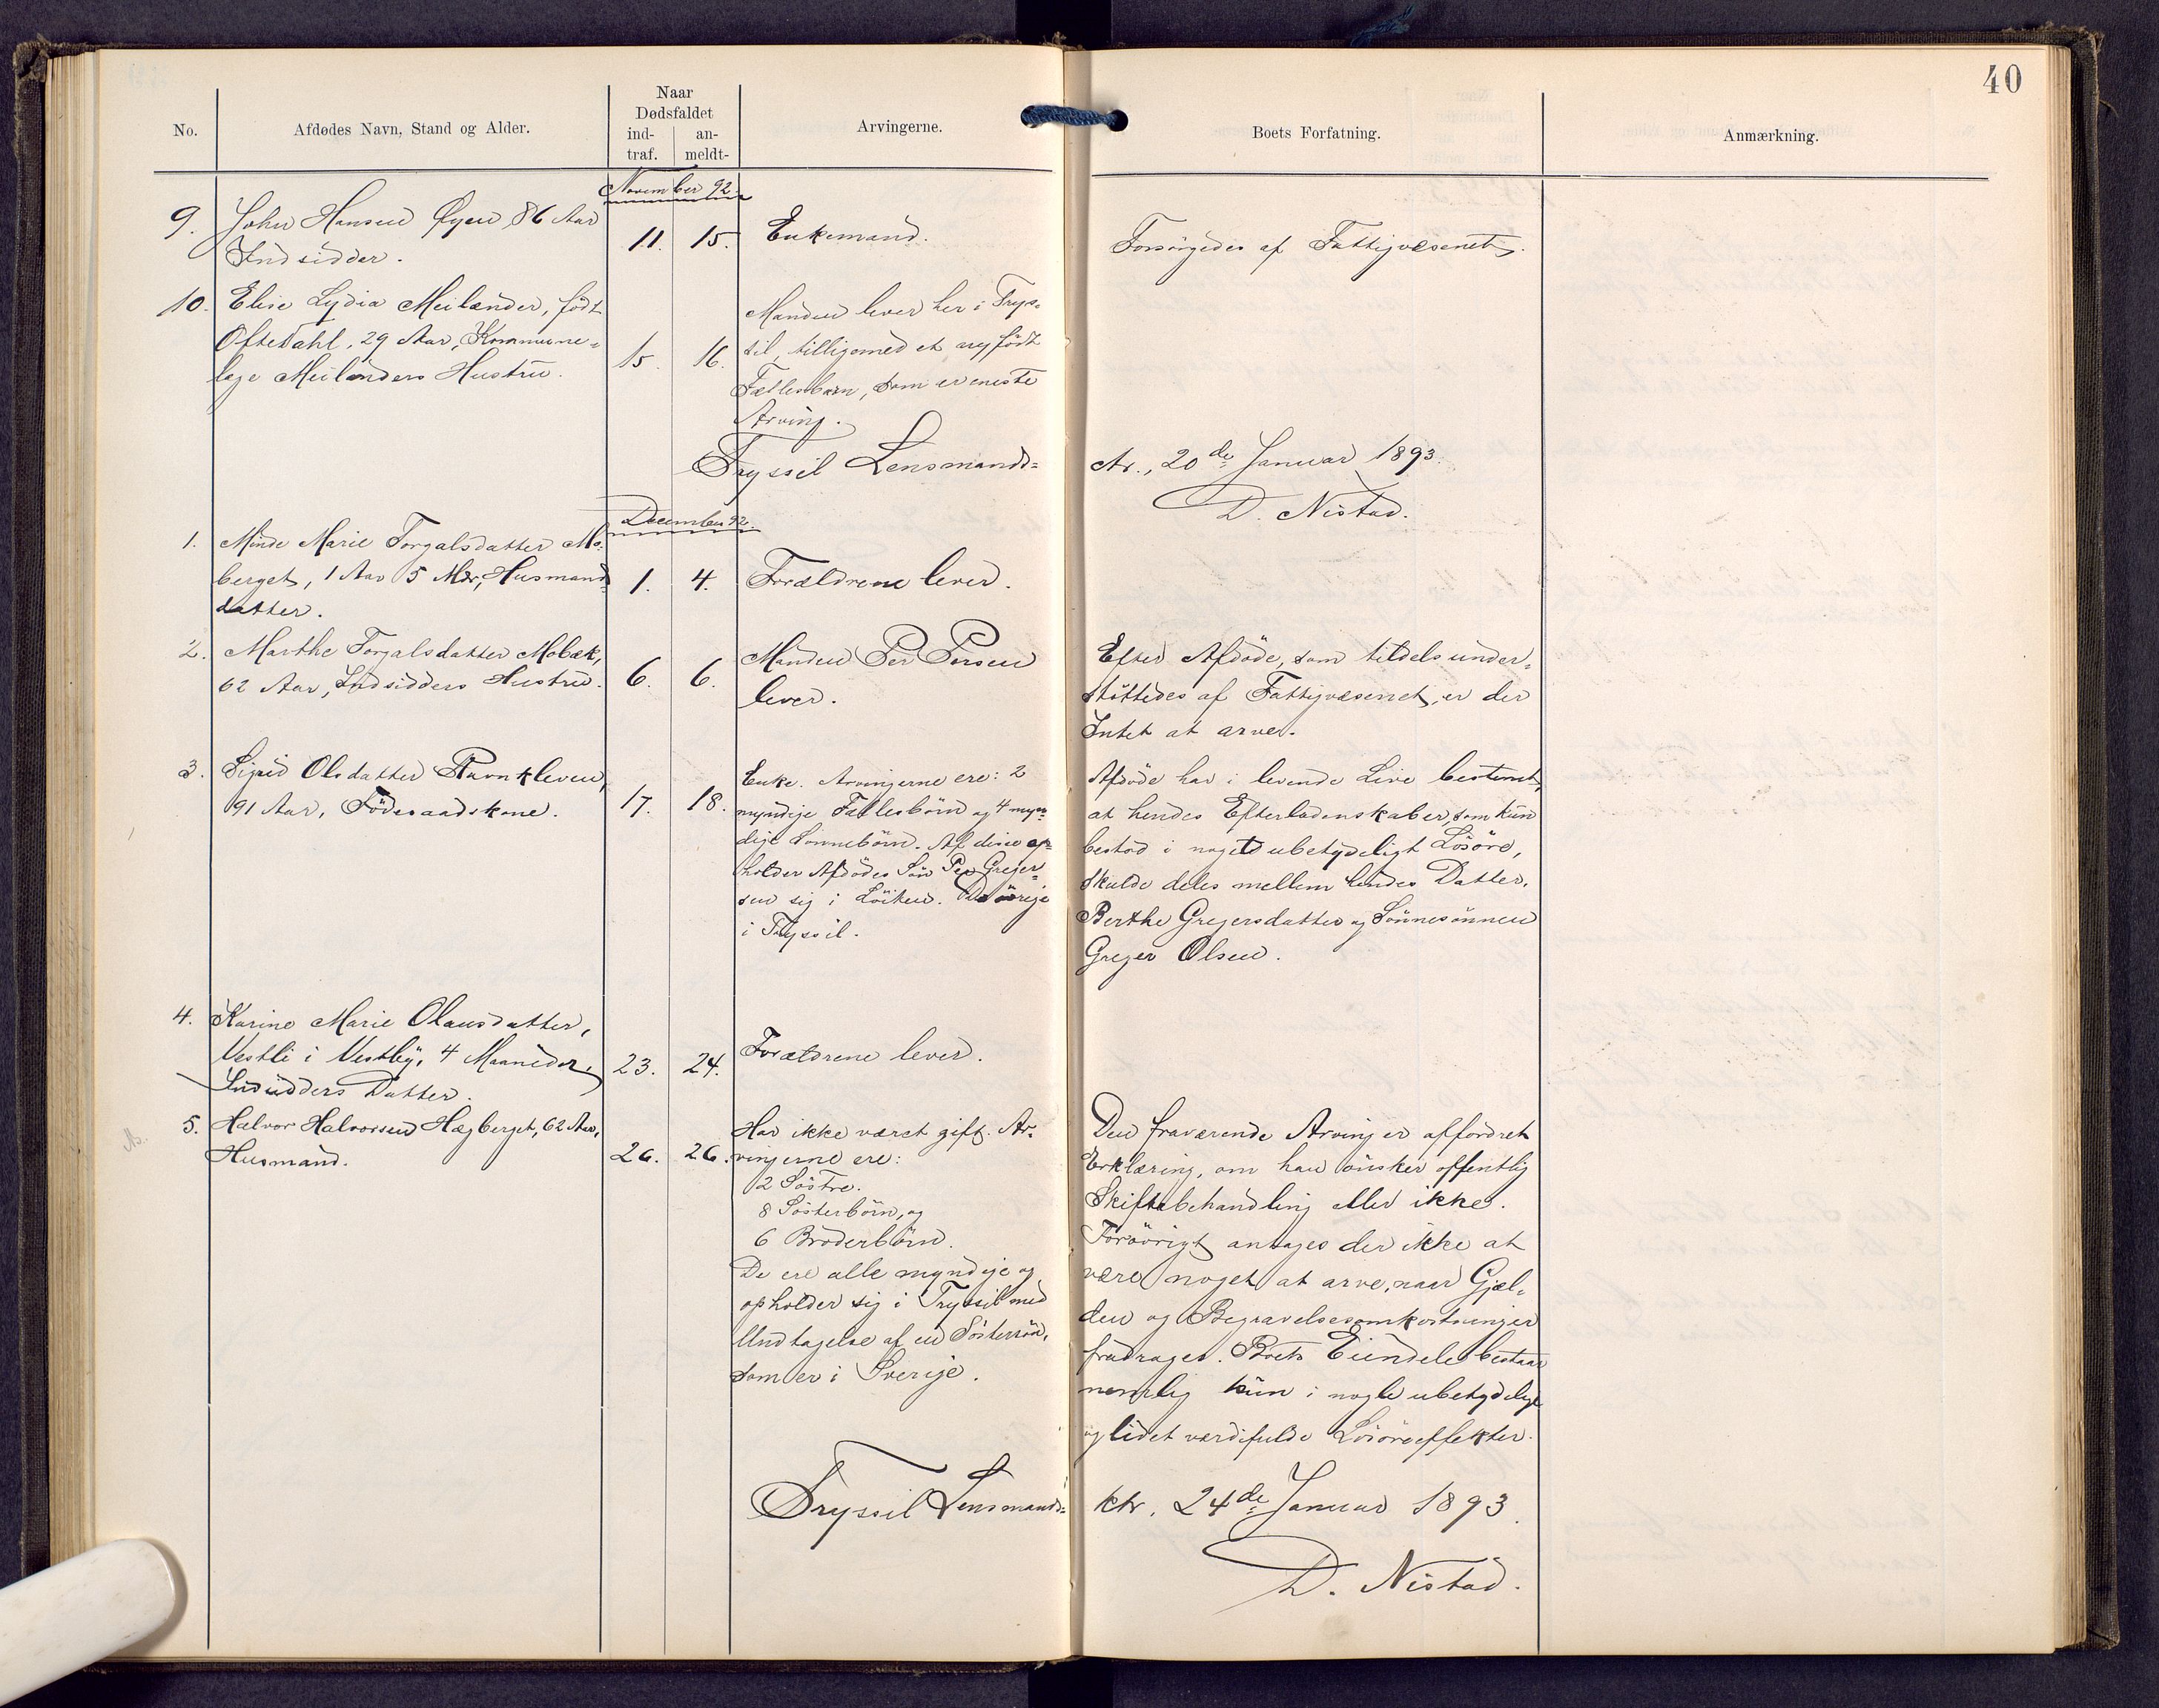 40
No.
Afdødes Navn, Stand og Alder.
Naar
Dødsfaldet
ind-
traf.
an-
meldt-
Arvingerne.
Boets Forfatning.
Anmærkning.
November 92.
9. John Hansen Øyen, 86 Aar
Indsidder.
11. 15. Enkemand.
Forsörgedes af Fattigvæsenet.
10. Elise Lydia Meilænder, födt
Oftedahl, 29 Aar, Kommune-
læge Meilænders Hustru.
15. 16.
Manden lever her i Trys-
sil, tilligemed et nyfödt
Fællesbarn, som er eneste
Arving.
Tryssil Lensmands-
ktr., 20de Januar 1893.
D. Nistad.
December 92.
1. Minde Marie Torgalsdatter Mo-
berget, 1 Aar 5 Mdr, Husmands-
datter.
1. 4. Forældrene lever.
2. Marthe Torgalsdatter Mobæk,
62 Aar, Indsidders Hustru.
6. 6.
Manden Per Persen
lever.
Efter Afdöde, som tildels under-
stöttedes af Fattigvæsenet, er der
Intet at arve.
3. Sigrid Olsdatter Ravnkleven,
91 Aar, Föderaadskone.
17. 18.
Enke. Arvingerne ere: 2
myndige Fællesbörn og 4 myn-
dige Sonnebörn. Af disse op-
holder Afdödes Sön Per Greger-
sen sig i Löiten. De övrige
i Tryssil.
Afdöde har i levende Live bestemt,
at hendes Efterladenskaber, som kun
bestod i noget ubetydeligt Lösöre,
skulde deles mellem hendes Datter,
Berthe Gregersdatter og Sönnesönnen
Greger Olsen.
4. Karine Marie Olausdatter,
Vestli i Vestby, 4 Maaneder,
Indsidders Datter.
23. 24. Forældrene lever.
5. Halvor Halvorsen Hægberget, 62 Aar,
Husmand.
26. 26.
Har ikke været gift. Ar-
vingerne ere:
2 Söstre.
8 Sösterbörn, og
6 Broderbörn.
De ere alle myndige og
opholder sig i Tryssil med
Undtagelse af en Söstersön,
som er i Sverige.
Den fraværende Arving er affordret
Erklæring, om han önsker offentlig
Skiftebehandling eller ikke.
Forövrigt antages der ikke at
være noget at arve, naar Gjæl-
den og Begravelsesomkostninger
fradrages. Boets Eiendele bestaar
nemlig kun i nogle ubetydelige
og lidet værdifulde Lösöreeffekter.
Tryssil Lensmands-
ktr. 24de Januar 1893.
D. Nistad.